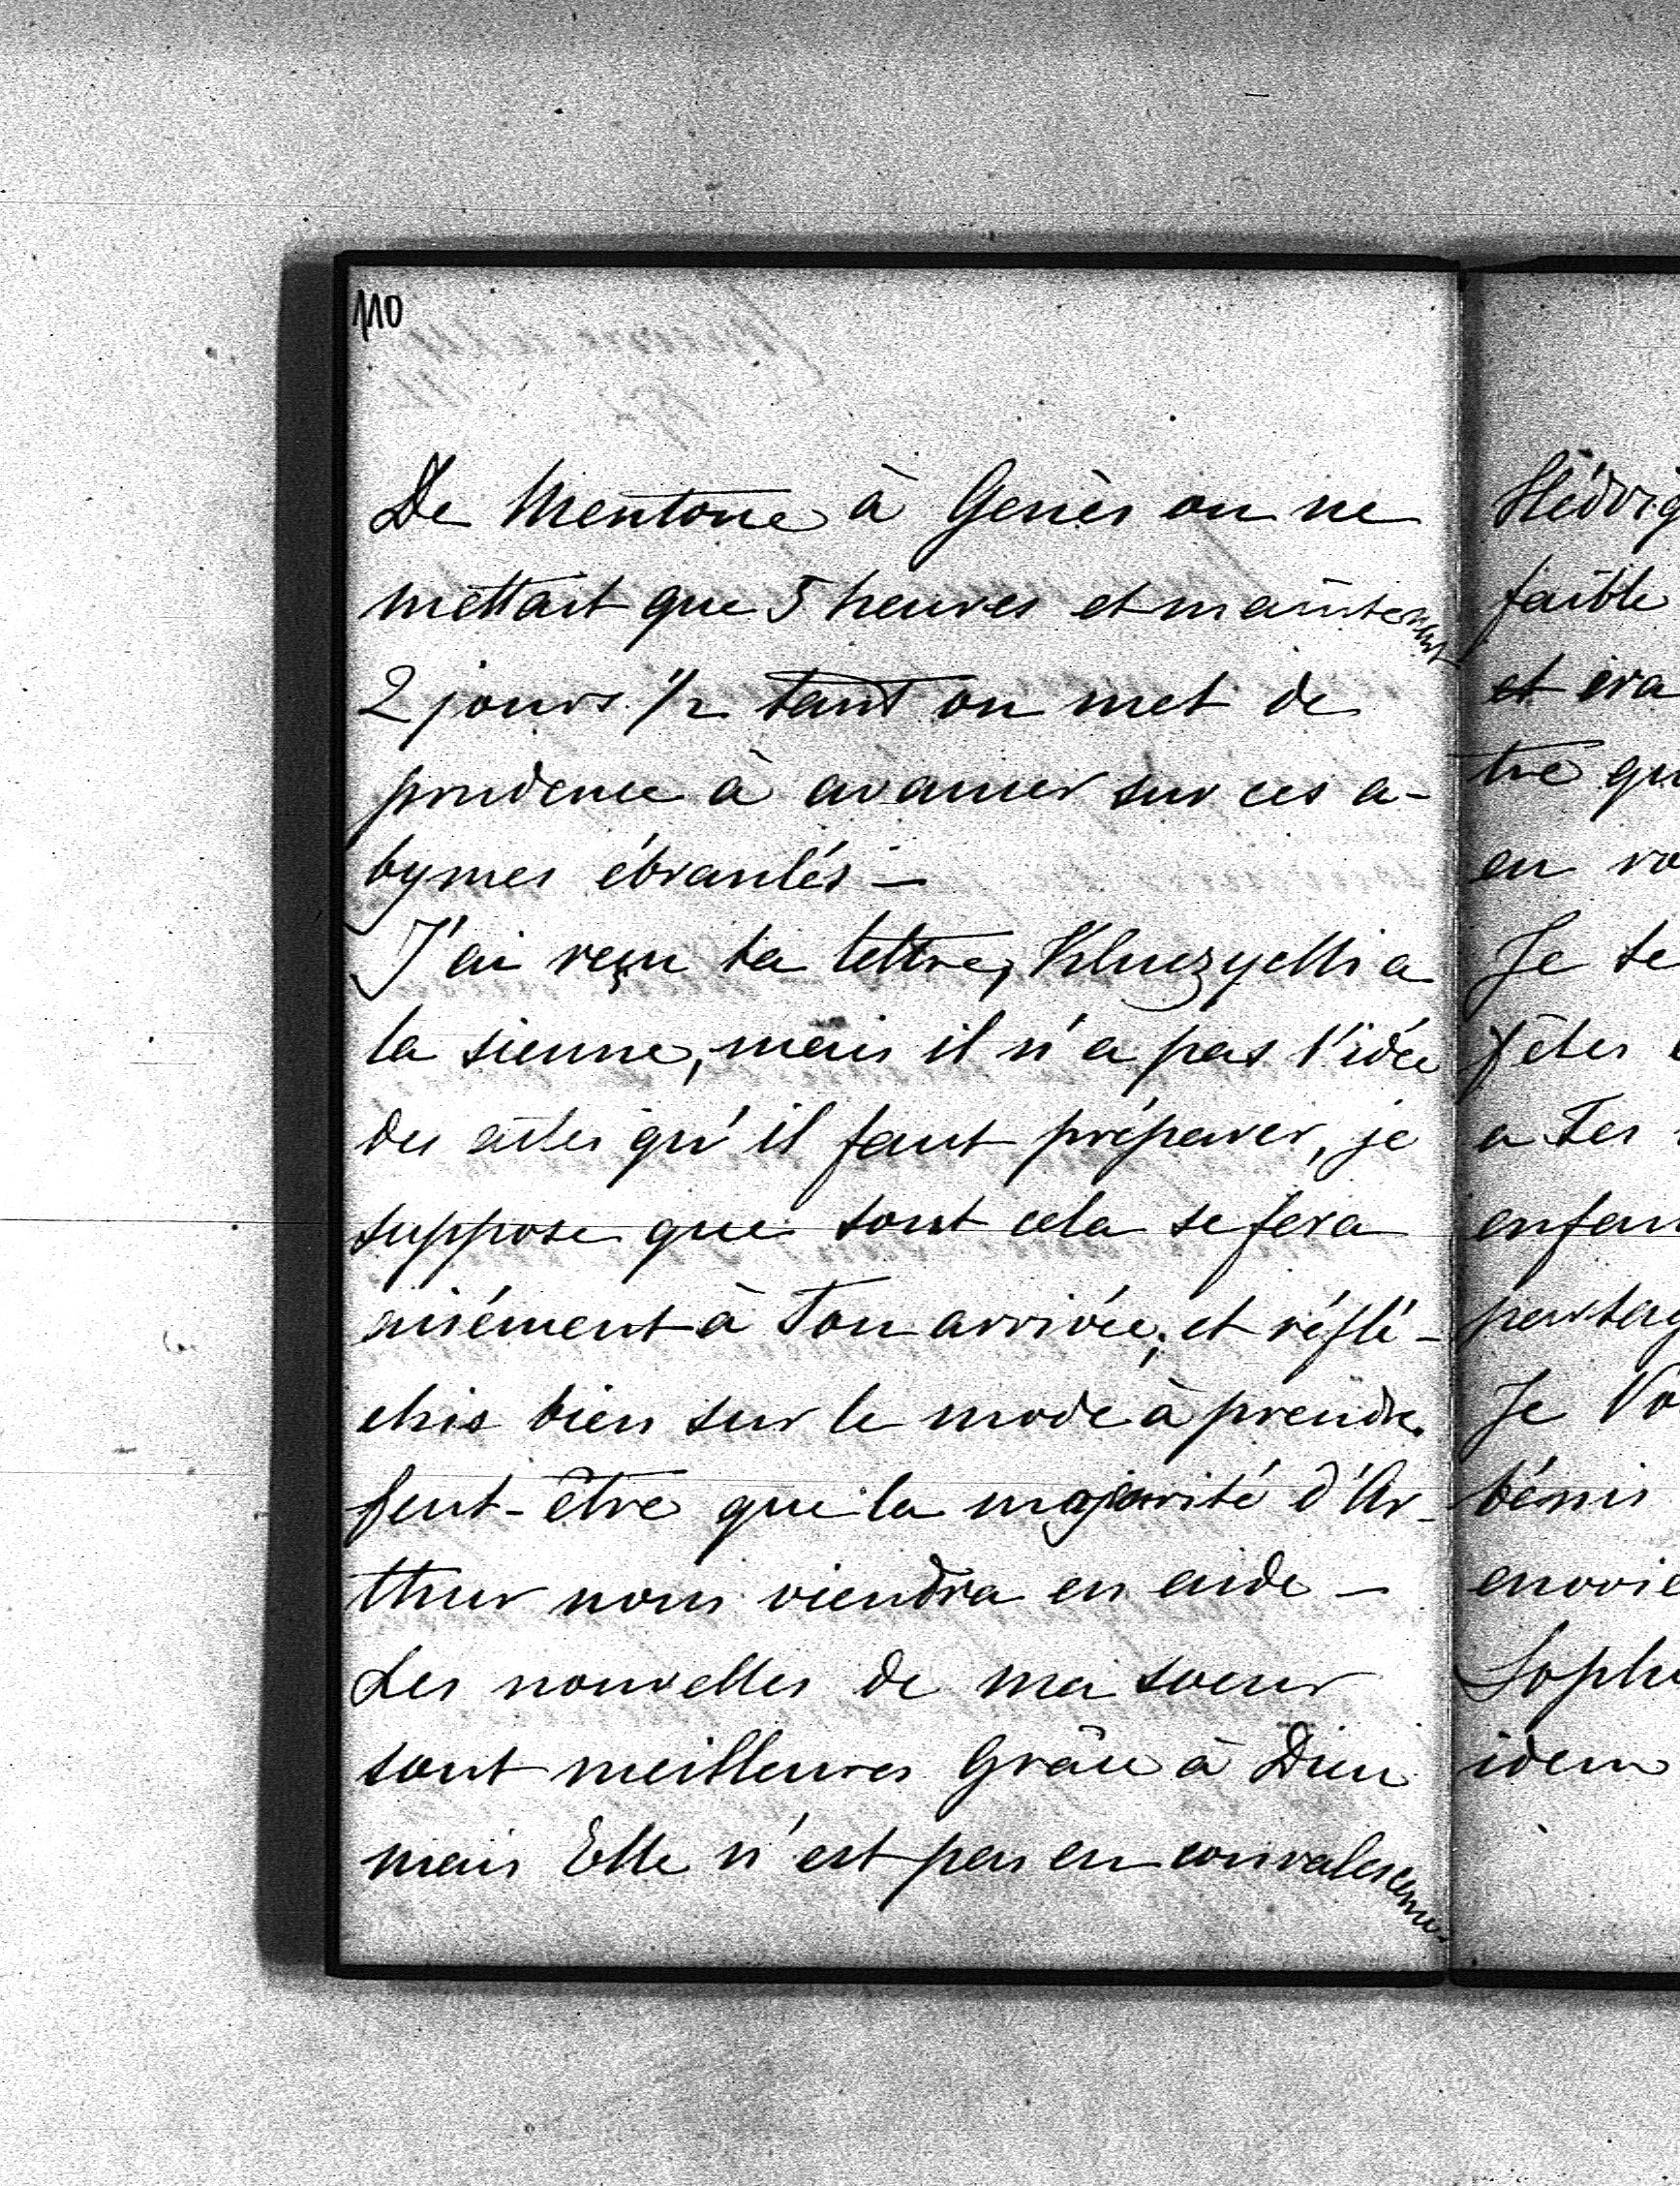 110
De Mentone à Gènès on ne
mettait que 5 heures et maintenant
2 jours 1/2 tant on met de
prudence à avancer sur ces a-
bymes ébranlés –
J'ai reçu ta lettre, Kluczycki a
la sienne, mais il n'a pas l'idée
des actes qu'il faut préparer, je
suppose que tout cela se fera
aisément à Ton arrivée; et réflé-
chis bien sur le mode à prendre.
peut-être que la majorité d'Ar-
thur nous viendra en aide –
Les nouvelles de ma soeur
sont meilleures Grâce à Dieu
mais Elle n'est pas en convalescence-
faible
et
en
Je te
fêtes
a Tes
Je
bénis
idem